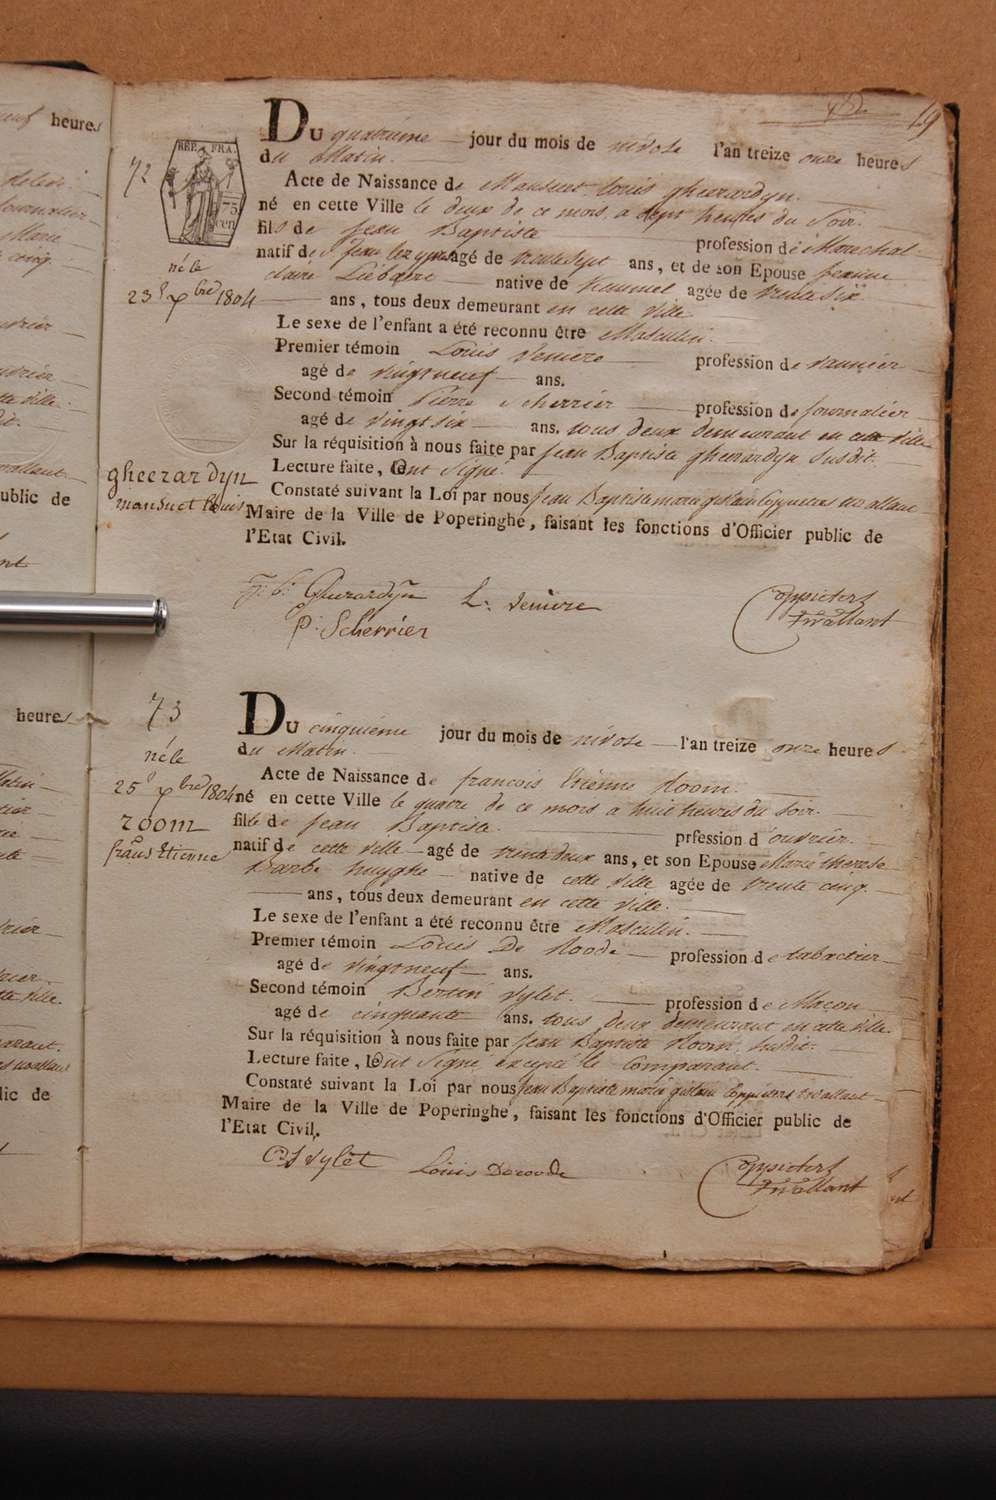 19
72
REP. FRA.
75
cen
né le
23 Xbre 1804
gheerardyn
mansuet louis
Du quatrieme jour du mois de nivose l'an treize onze heures
du Matin.
Acte de Naissance de Mansuet Louis gheerardyn.
né en cette Ville le deux de ce mois a sept heures du Soir.
fils de Jean Baptiste profession de Marechal
natif de St Jean lez ypres agé de trente sept ans, et de son Epouse Jeanne
claire Liebaert native de agée de trente six
ans, tous deux demeurant en cette ville
Le sexe de l'enfant a été reconnu être Masculin.
Premier témoin Louis deniere profession de
agé de vingtneuf ans.
Second témoin Pierre scherrier profession de Journalier
agé de vingt six ans. tous deux demeurant en cette ville
Sur la réquisition à nous faite par Jean Baptiste gheerardyn Susdit.
Lecture faite, Ont Signé.
Constaté suivant la Loi par nous Jean Baptiste marie
Maire de la Ville de Poperinghe, faisant les fonctions d'Officier public de
l'Etat Civil.
L. deniere
P. Scherrier
73
né le
25 Xbre 1804
room
frans Etienne
Du cinquieme jour du mois de nivose l'an treize onze heures
du Matin.
Acte de Naissance de francois Etienne Room.
né en cette Ville le quatre de ce mois a huit heures du Soir.
fils de Jean Baptiste. prfession d'ouvrier.
natif de cette ville agé de trente deux ans, et son Epouse Marie therese
Barbe huyghe native de cette Ville agée de trente cinq.
ans, tous deux demeurant en cette ville.
Le sexe de l'enfant a été reconnu être Masculin.
Premier témoin Louis De Roode profession de tabactier
agé de vingtneuf ans.
Second témoin Bertin Sylet. profession de Macon
agé de cinquante ans. tous deux demeurant en cette ville.
Sur la réquisition à nous faite par Jean Baptiste Room, Susdit.
Lecture faite, Ont Signe excepté le comparant.
Constaté suivant la Loi par nous Jean Baptiste marie
Maire de la Ville de Poperinghe, faisant les fonctions d'Officier public de
l'Etat Civil.
Louis Deroode